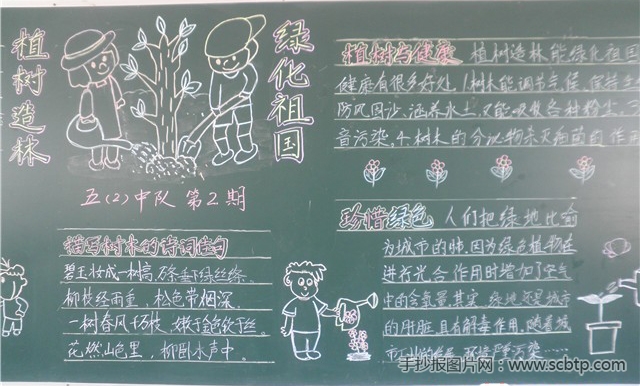 植树造林
绿化祖国
五(2)中队 第2期
描写树木的诗词佳句
碧玉妆成一树高 条垂绿丝绦。
柳枝经雨重,松色带烟深。
一树春风千万枝,嫩于金色软于丝。
花燃山色里,柳卧水声中。
植树与健康 植树造林能绿化祖国
健康有很多好处,1树木能调节气候、保持生
防风固沙、涵养水土,又能吸收各种粉尘、
音污染,4.树木的分泌物杀灭病菌的作
珍惜绿色 人们把绿地比俞
为城市的肺,因为绿色植物在
进行光合作用时增加了空气
中的含氧量,其实,绿地还是城市
的肝脏,且有解毒作用,随着城
市工业的发展,环境严重污染……
手抄报图片网:www.scbtp.com